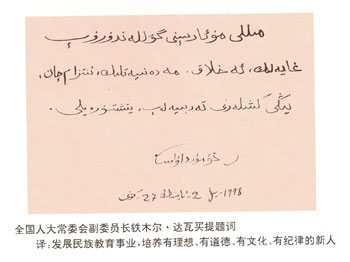 مىللى مۇئارىپنى گۈللەندۈرۈپ
غايەلىك، ئەخلاق، مەدەنىيەتلىك، ئىنتىزامچان،
يېڭى كىشىلەرنى تەربىيەلەپ، يېتىشتۈرەيلى.
1998-يىل 2-ئاينىڭ 27-كۈنى
全国人大常委会副委员长铁木尔·达瓦买提题词
译：发展民族教育事业，培养有理想、有道德、有文化、有纪律的新人